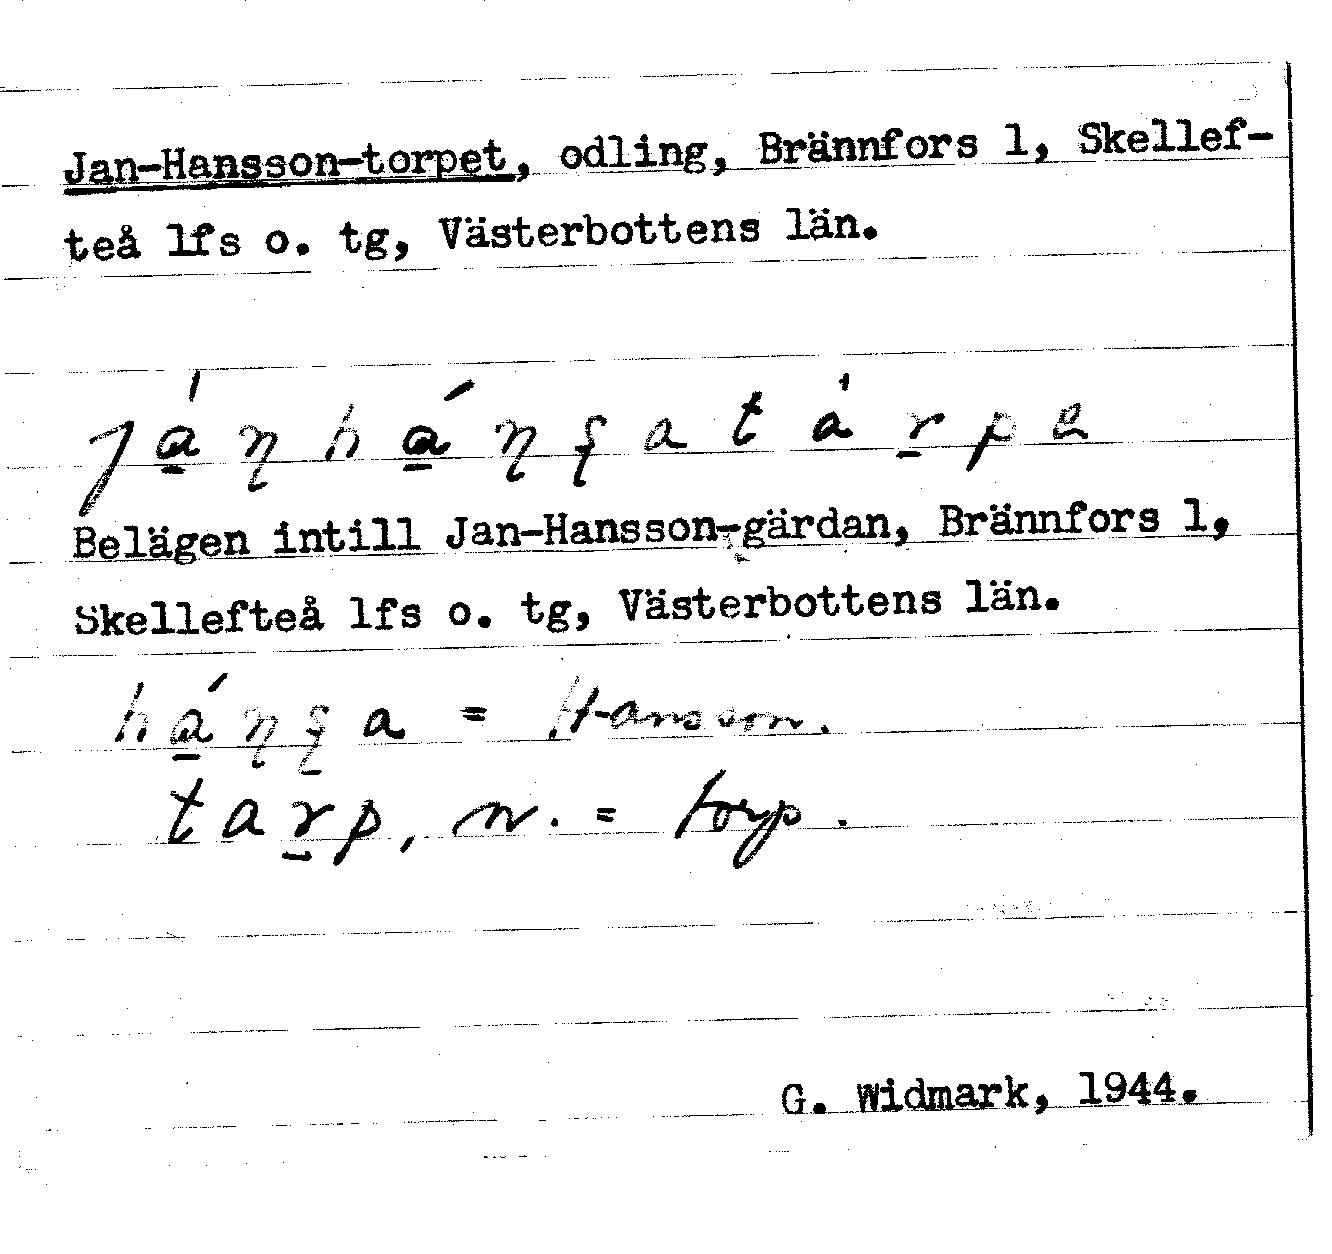 Jan-Hansson-torpet, odling, Brännfors 1, Skellef-
teå lfs o. tg, Västerbottens län.
ȷá̱ɳhá̱ɳʂatȧ́r̠pa
Belägen intill Jan-Hansson-gärdan, Brännfors 1,
Skellefteå lfs o. tg, Västerbottens län.
há̱ɳʂa = Hansson.
tar̠p, n. = torp.
G. Widmark, 1944.